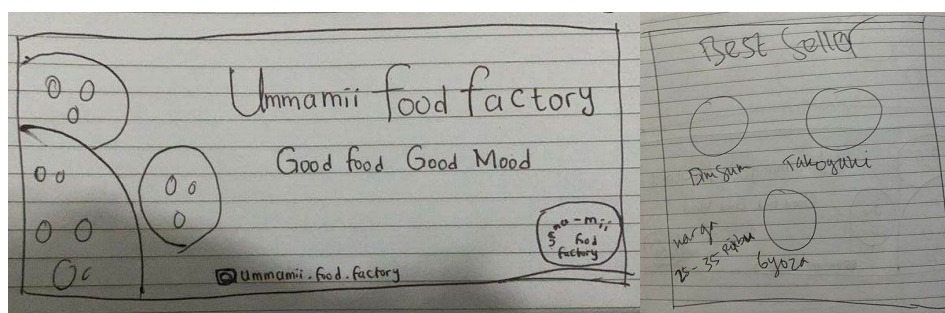 Ummamii food factory
Good food Good Mood
mii
food
factory
ummamii.food.factory
Best Seller
Dimsum Takoyaki
Gyoza
harga
25-35 ribu